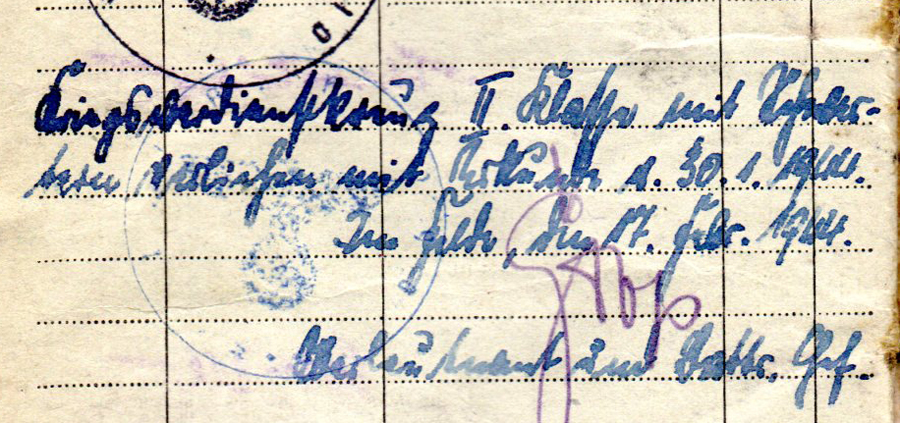 Kriegsverdienstkreuz II. Klasse mit Schwer-
tern verliehen mit Urkunde v. 30.1.1944.
Im Felde, den 17. Febr. 1944.
Oberleutnant und Battr. Chef.